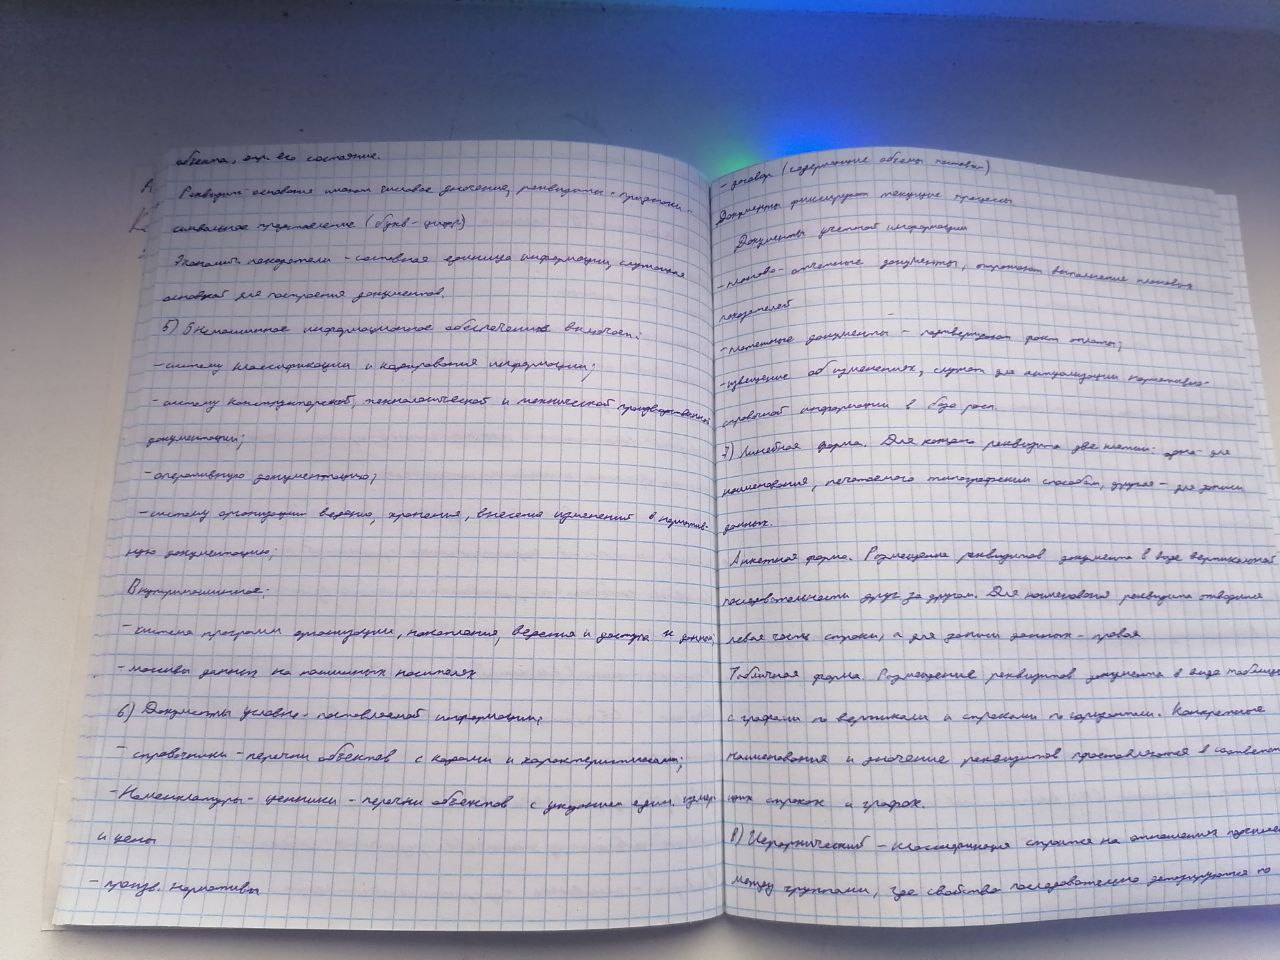 объекта, опр. его состояние.
Реквизиты основания имеют числовое значение, реквизиты-признаки -
символьное представление (букв-цифр)
Экономич. показатели - составная единица информации, служащая
основой для построения документов.
5) Внемашинное информационное обеспечение включает:
- систему классификации и кодирования информации;
- систему конструкторской, технологической и технической производственной
документации;
- оперативную документацию;
- систему организации ведения, хранения, внесения изменений в норматив-
ную документацию;
Внутримашинное:
- система программ организации, накопления, ведения и доступа к данным;
- массивы данных на машинных носителях
6) Документы условно-постоянной информации:
- справочники - перечни объектов с кодами и характеристиками;
- Номенклатуры-ценники - перечни объектов с указанием един. измер
и цены
- произв. нормативы
- договор (содержащие объемы поставки)
Документы фиксируют текущие процессы
Документы учетной информации
- планово-отчетные документы, отражают выполнение плановых
показателей
- платежные документы - подтверждают факт оплаты;
- извещение об изменениях, служат для актуализации нормативно-
справочной информации в базе
7) Линейная форма. Для каждого реквизита две клетки: одна - для
наименования, печатаемого типографским способом, другая - для записи
данных.
Анкетная форма. Размещение реквизитов документа в виде вертикальной
последовательности друг за другом. Для наименования реквизита отводится
левая часть строки, а для записи данных - правая
Табличная форма. Размещение реквизитов документа в виде таблицы
с графами по вертикали и строками по горизонтали. Конкретные
наименования и значение реквизитов проставляются в соответст
щих строках и графах.
8) Иерархический - классификация строится на отношениях подчинен
между группами, где свойства последовательно детализируются по